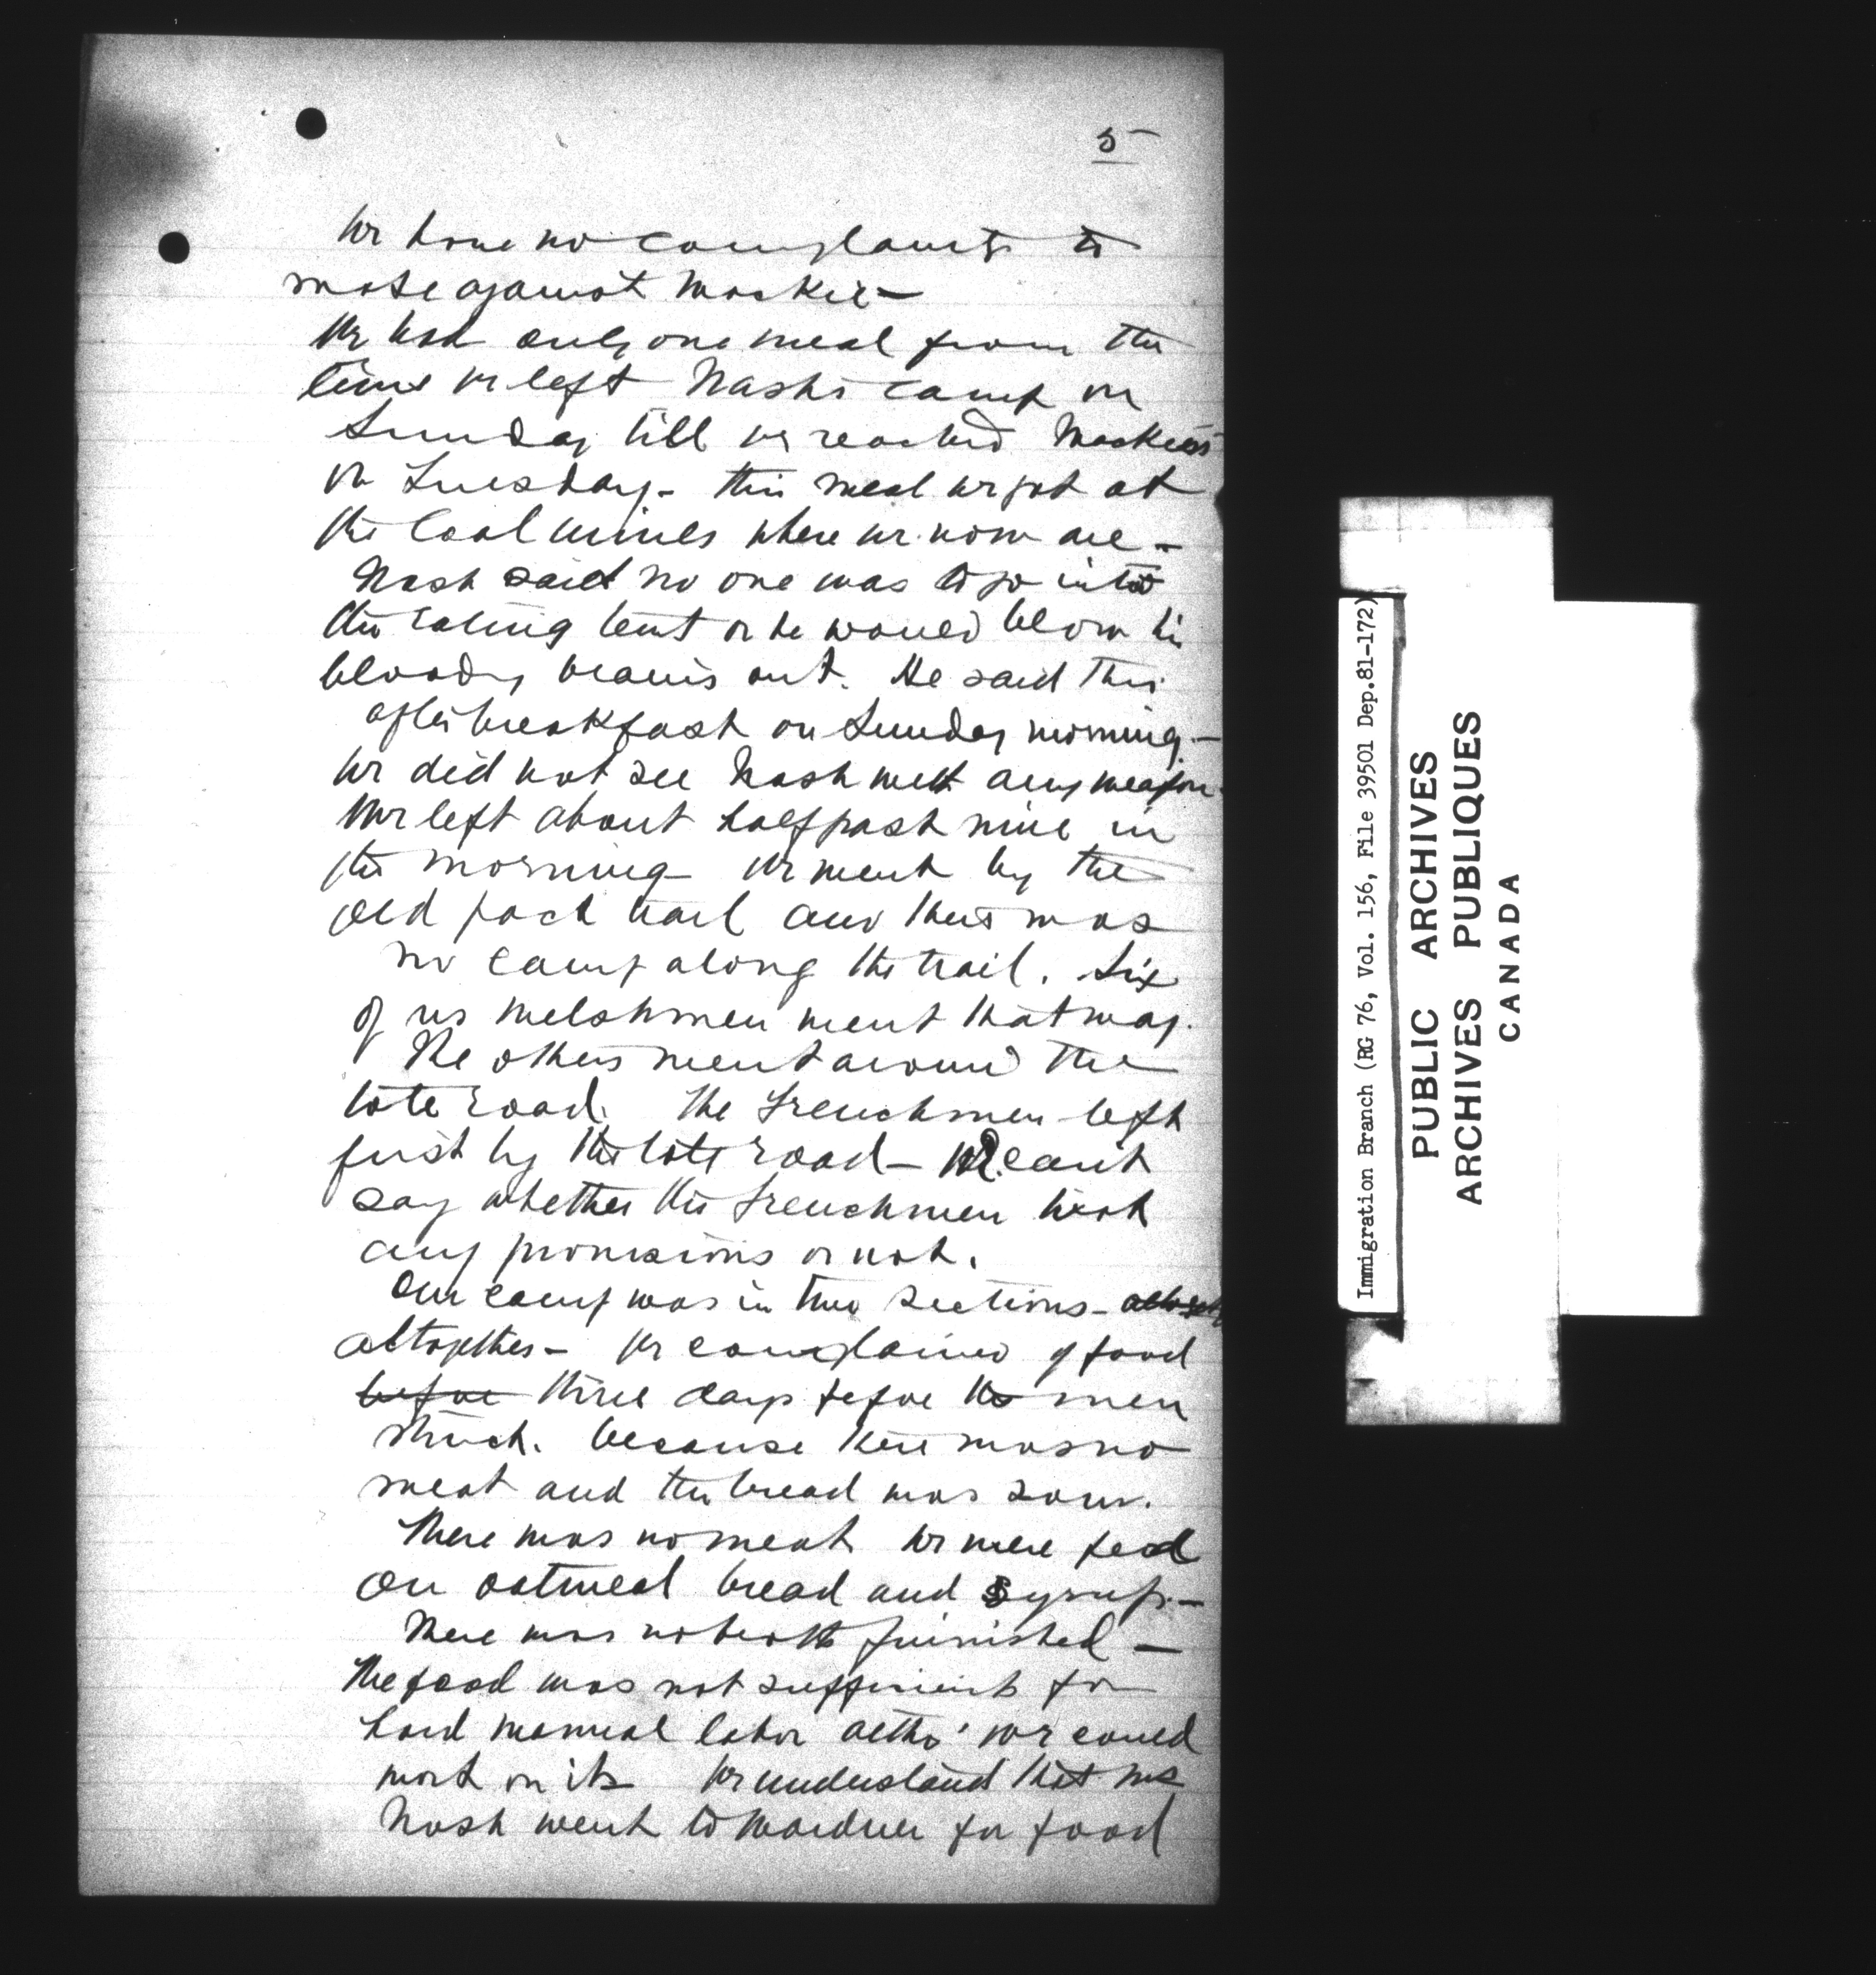 5
We have no complaints to
make against Mackie —
We had only one meal from the
time we left Nash's camp on
Sunday till we reached Mackies
on Tuesday - this meal we got at
the Coal mines where we now are —
Nash said no one was to go into
the eating tent or he would blow his
bloody brains out. He said this
after breakfast on Sunday morning. —
We did not see Nash with any weapon.
We left about half past nine in
the morning we went by the
old pack trail and there was
no camp along the trail. Six
of us Welshmen went that way.
The others went around the
tote road. The Frenchmen left
first by the tote road — We can't
say whether the Frenchmen took
any provisions or not.
Our camp was in two sections —
altogether — We complained of food
before three days before the men
struck. because there was no
meat and the bread was sour.
There was no meat we were fed
on oatmeal bread and syrup. —
There was no broth furnished —
The food was not sufficient for
hard manual labor altho' we could
work on it We understand that
Nash went to Wardner for food
Immigration Branch (RG 76, Vol. 156, File 39501 Dep.81-172)
PUBLIC ARCHIVES
ARCHIVES PUBLIQUES
CANADA